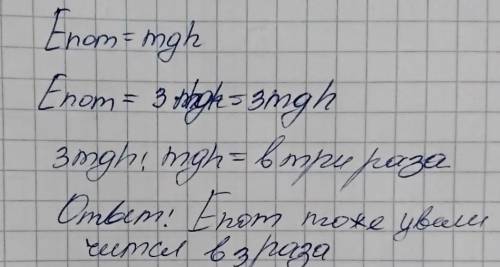 Епот = mgh
Епот = 3mgh = 3mgh
3mgh : mgh = в три раза
Ответ: Епот тоже увели
чится в 3 раза